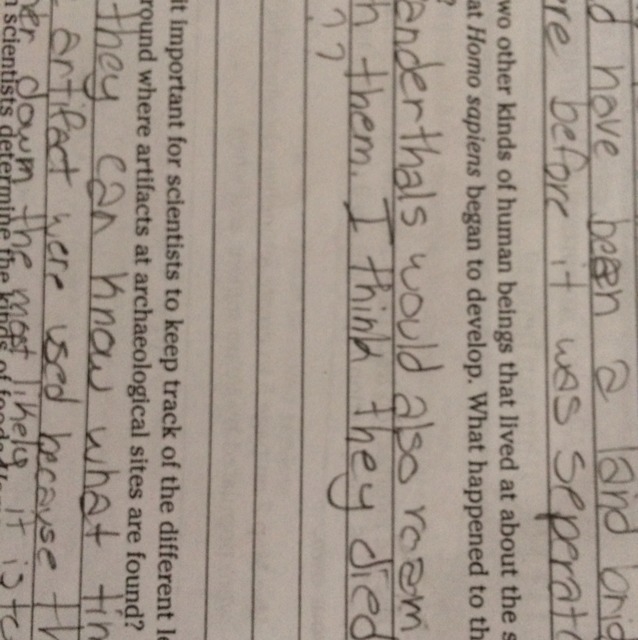 have been a land
re before it was seperat
wo other kinds of human beings that lived at about the s
at Homo sapiens began to develop. What happened to th
?
anderthals would also roam
h them. I think they died
it important for scientists to keep track of the different l
round where artifacts at archaeological sites are found?
they can know what tin
artifact were used because th
er down the most likely it is
scientists determine the kinds of